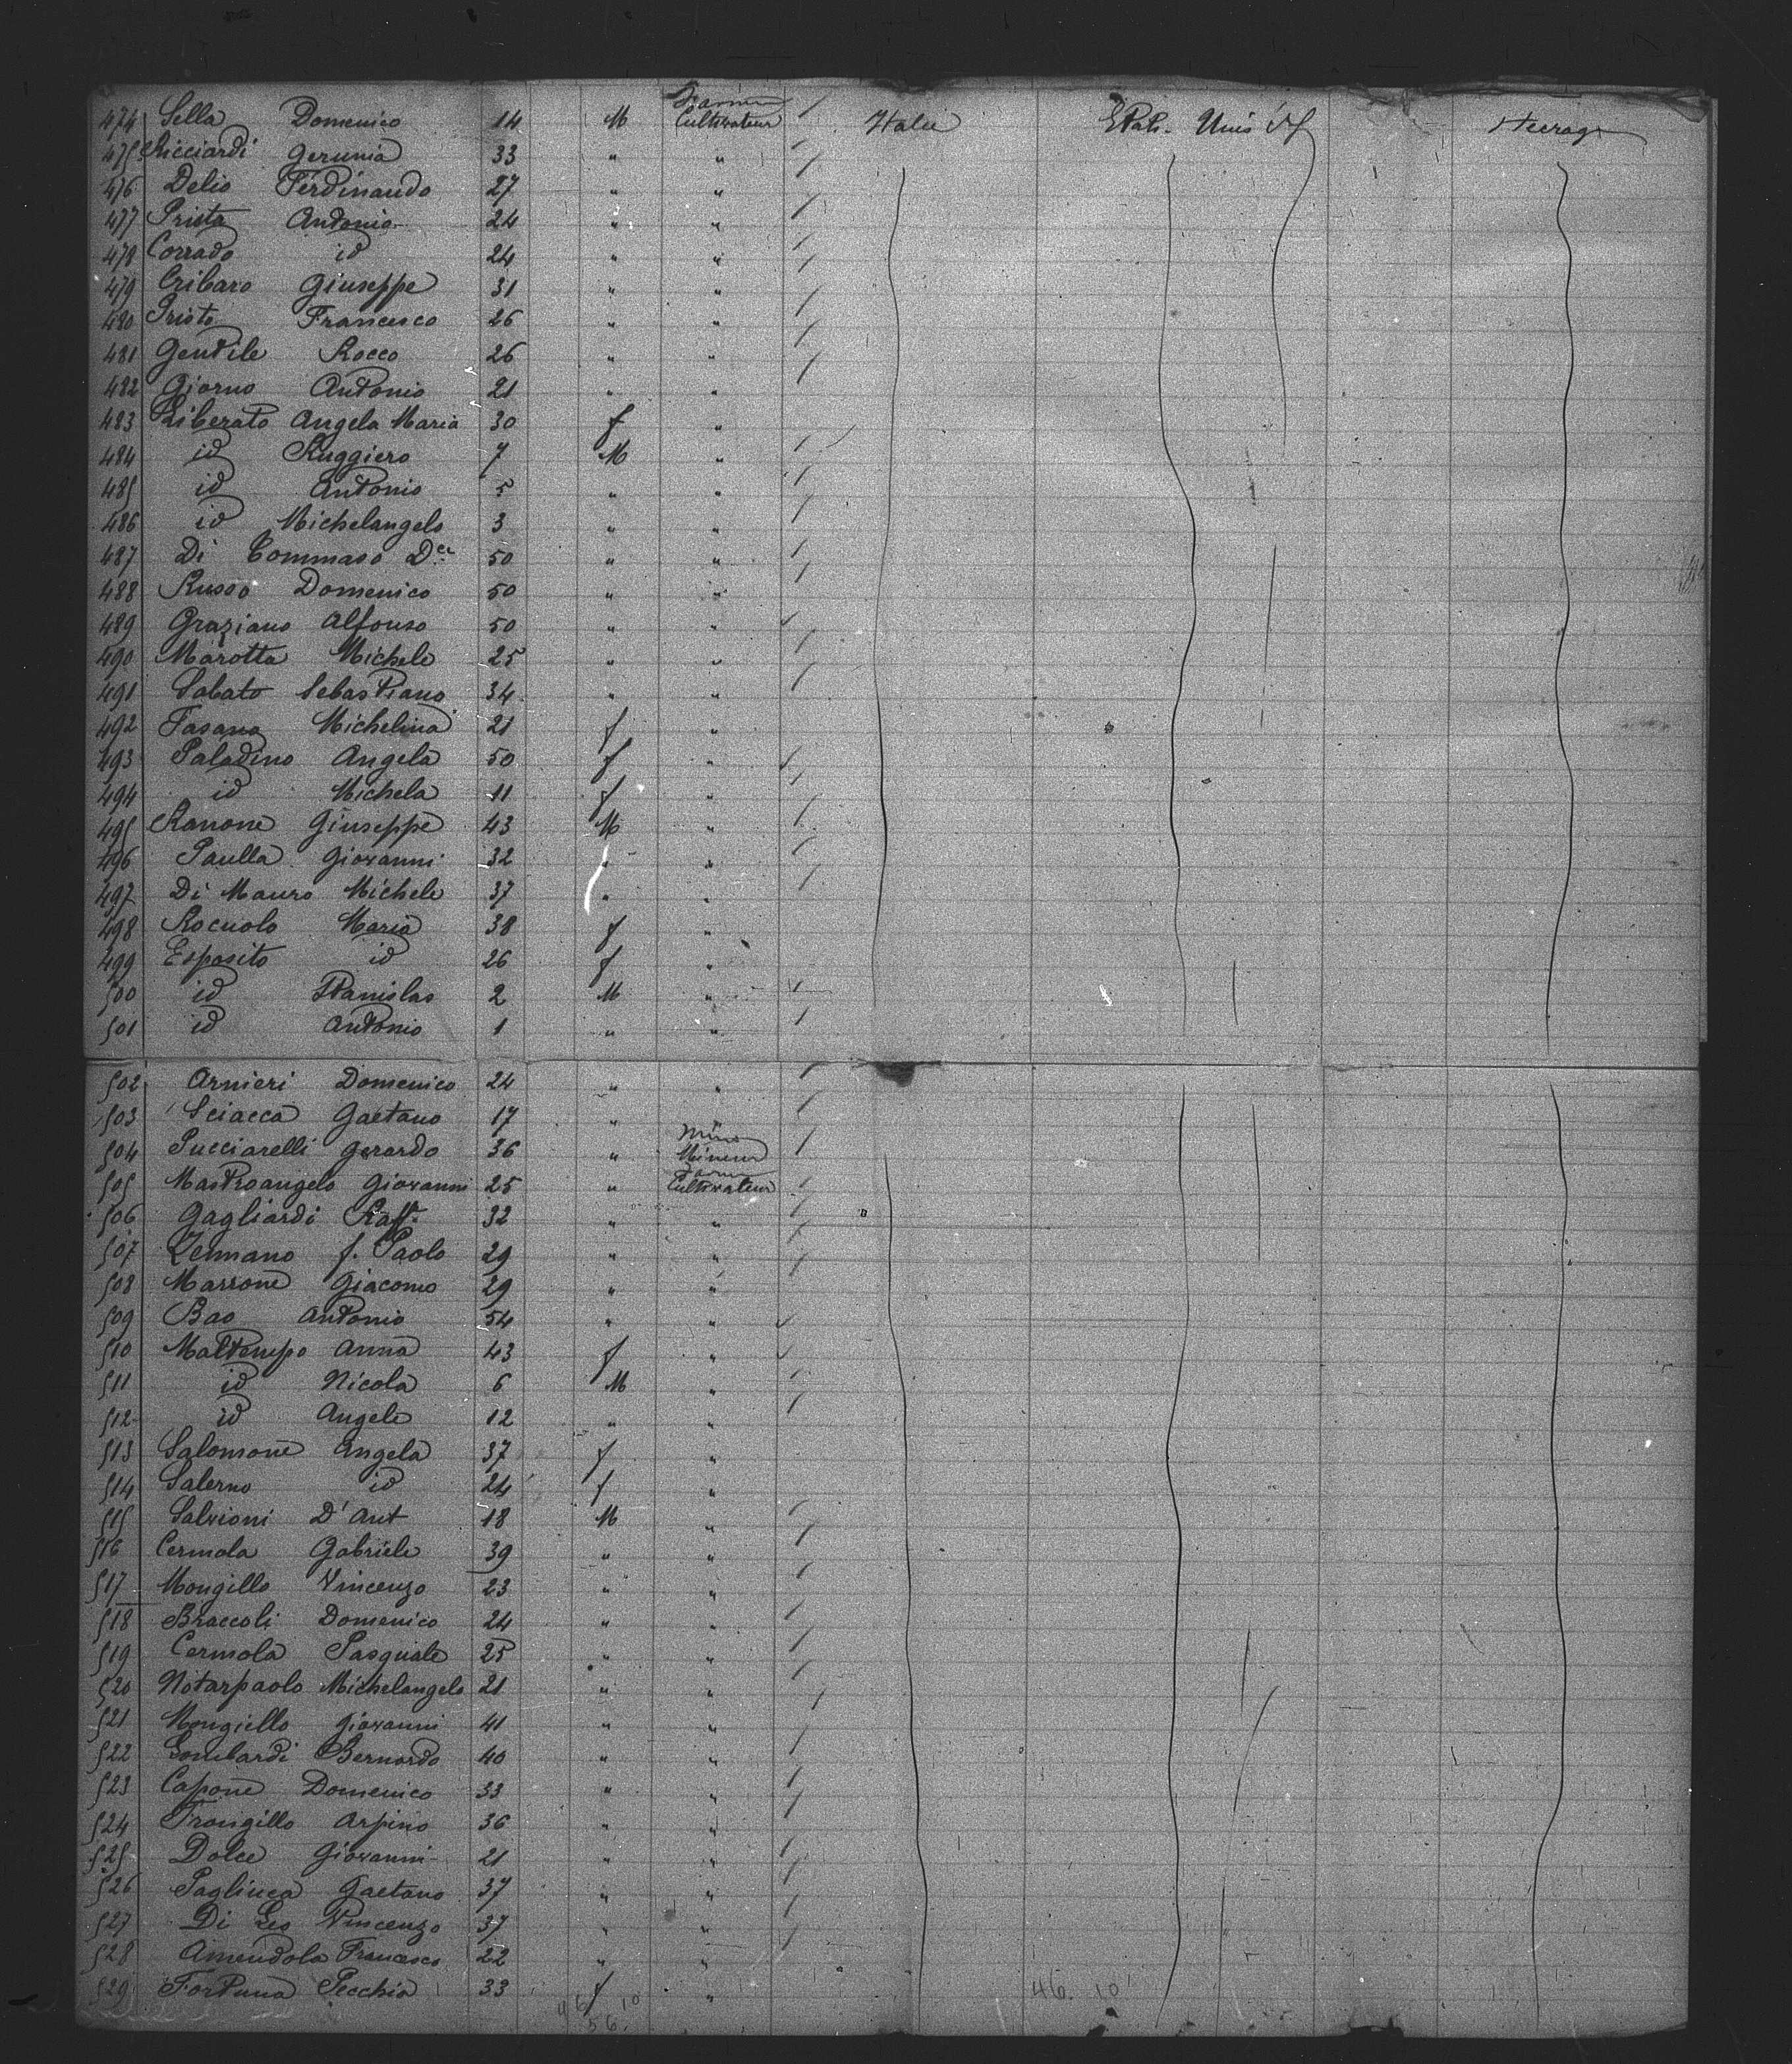 474 Sella Domenico 14 M Farmer Cultivateur Italie Etats-Unis d'A Steerage
475 Ricciardi Gerunia 33 " "
476 Delio Ferdinando 27 " "
477 Pristo Antonio 24 " "
478 Corrado id 24 " "
479 Cribaro Giuseppe 31 " "
480 Pristo Francesco 26 " "
481 Gentile Rocco 26 " "
482 Giorno Antonio 21 " "
483 Liberato Angela Maria 30 f "
484 id Ruggiero 7 M "
485 id Antonio 5 " "
486 id Michelangelo 3 " "
487 Di Tommaso Dco 50 " "
488 Russo Domenico 50 " "
489 Graziano Alfonso 50 " "
490 Marotta Michele 25 " "
491 Sabato Sebastiano 34 " "
492 Fasano Michelina 21 f "
493 Paladino Angela 50 f "
494 id Michela 11 f "
495 Ranone Giuseppe 43 M "
496 Paulla Giovanni 32 " "
497 Di Mauro Michele 37 " "
498 Rocuolo Maria 38 f "
499 Esposito id 26 f "
500 id Stanislas 2 M "
501 id Antonio 1 " "
502 Arnieri Domenico 24 " "
503 Sciacca Gaetano 17 " "
504 Pucciarelli Gerardo 36 " Miner Mineur
505 Mastroangelo Giovanni 25 " Farmer Cultivateur
506 Gagliardi Raff. 32 " "
507 Zennano f. Paolo 29 " "
508 Marrone Giacomo 29 " "
509 Bao Antonio 54 " "
510 Maltempo Anna 43 f "
511 id Nicola 6 M "
512 id Angelo 12 " "
513 Salomone Angela 37 f "
514 Salerno id 24 f "
515 Salvioni D'Ant 18 M "
516 Cermola Gabriele 39 " "
517 Mongillo Vincenzo 23 " "
518 Braccoli Domenico 24 " "
519 Cermola Pasquale 25 " "
520 Notarpaolo Michelangelo 21 " "
521 Mongiello Giovanni 41 " "
522 Lombardi Bernardo 40 " "
523 Capone Domenico 33 " "
524 Frongillo Arpino 36 " "
525 Dolce Giovanni 21 " "
526 Pagliuca Gaetano 37 " "
527 Di Leo Vincenzo 37 " "
528 Amendola Francesco 22 " "
529 Fortuna Pecchia 33 f "
46 10 46. 10
56.